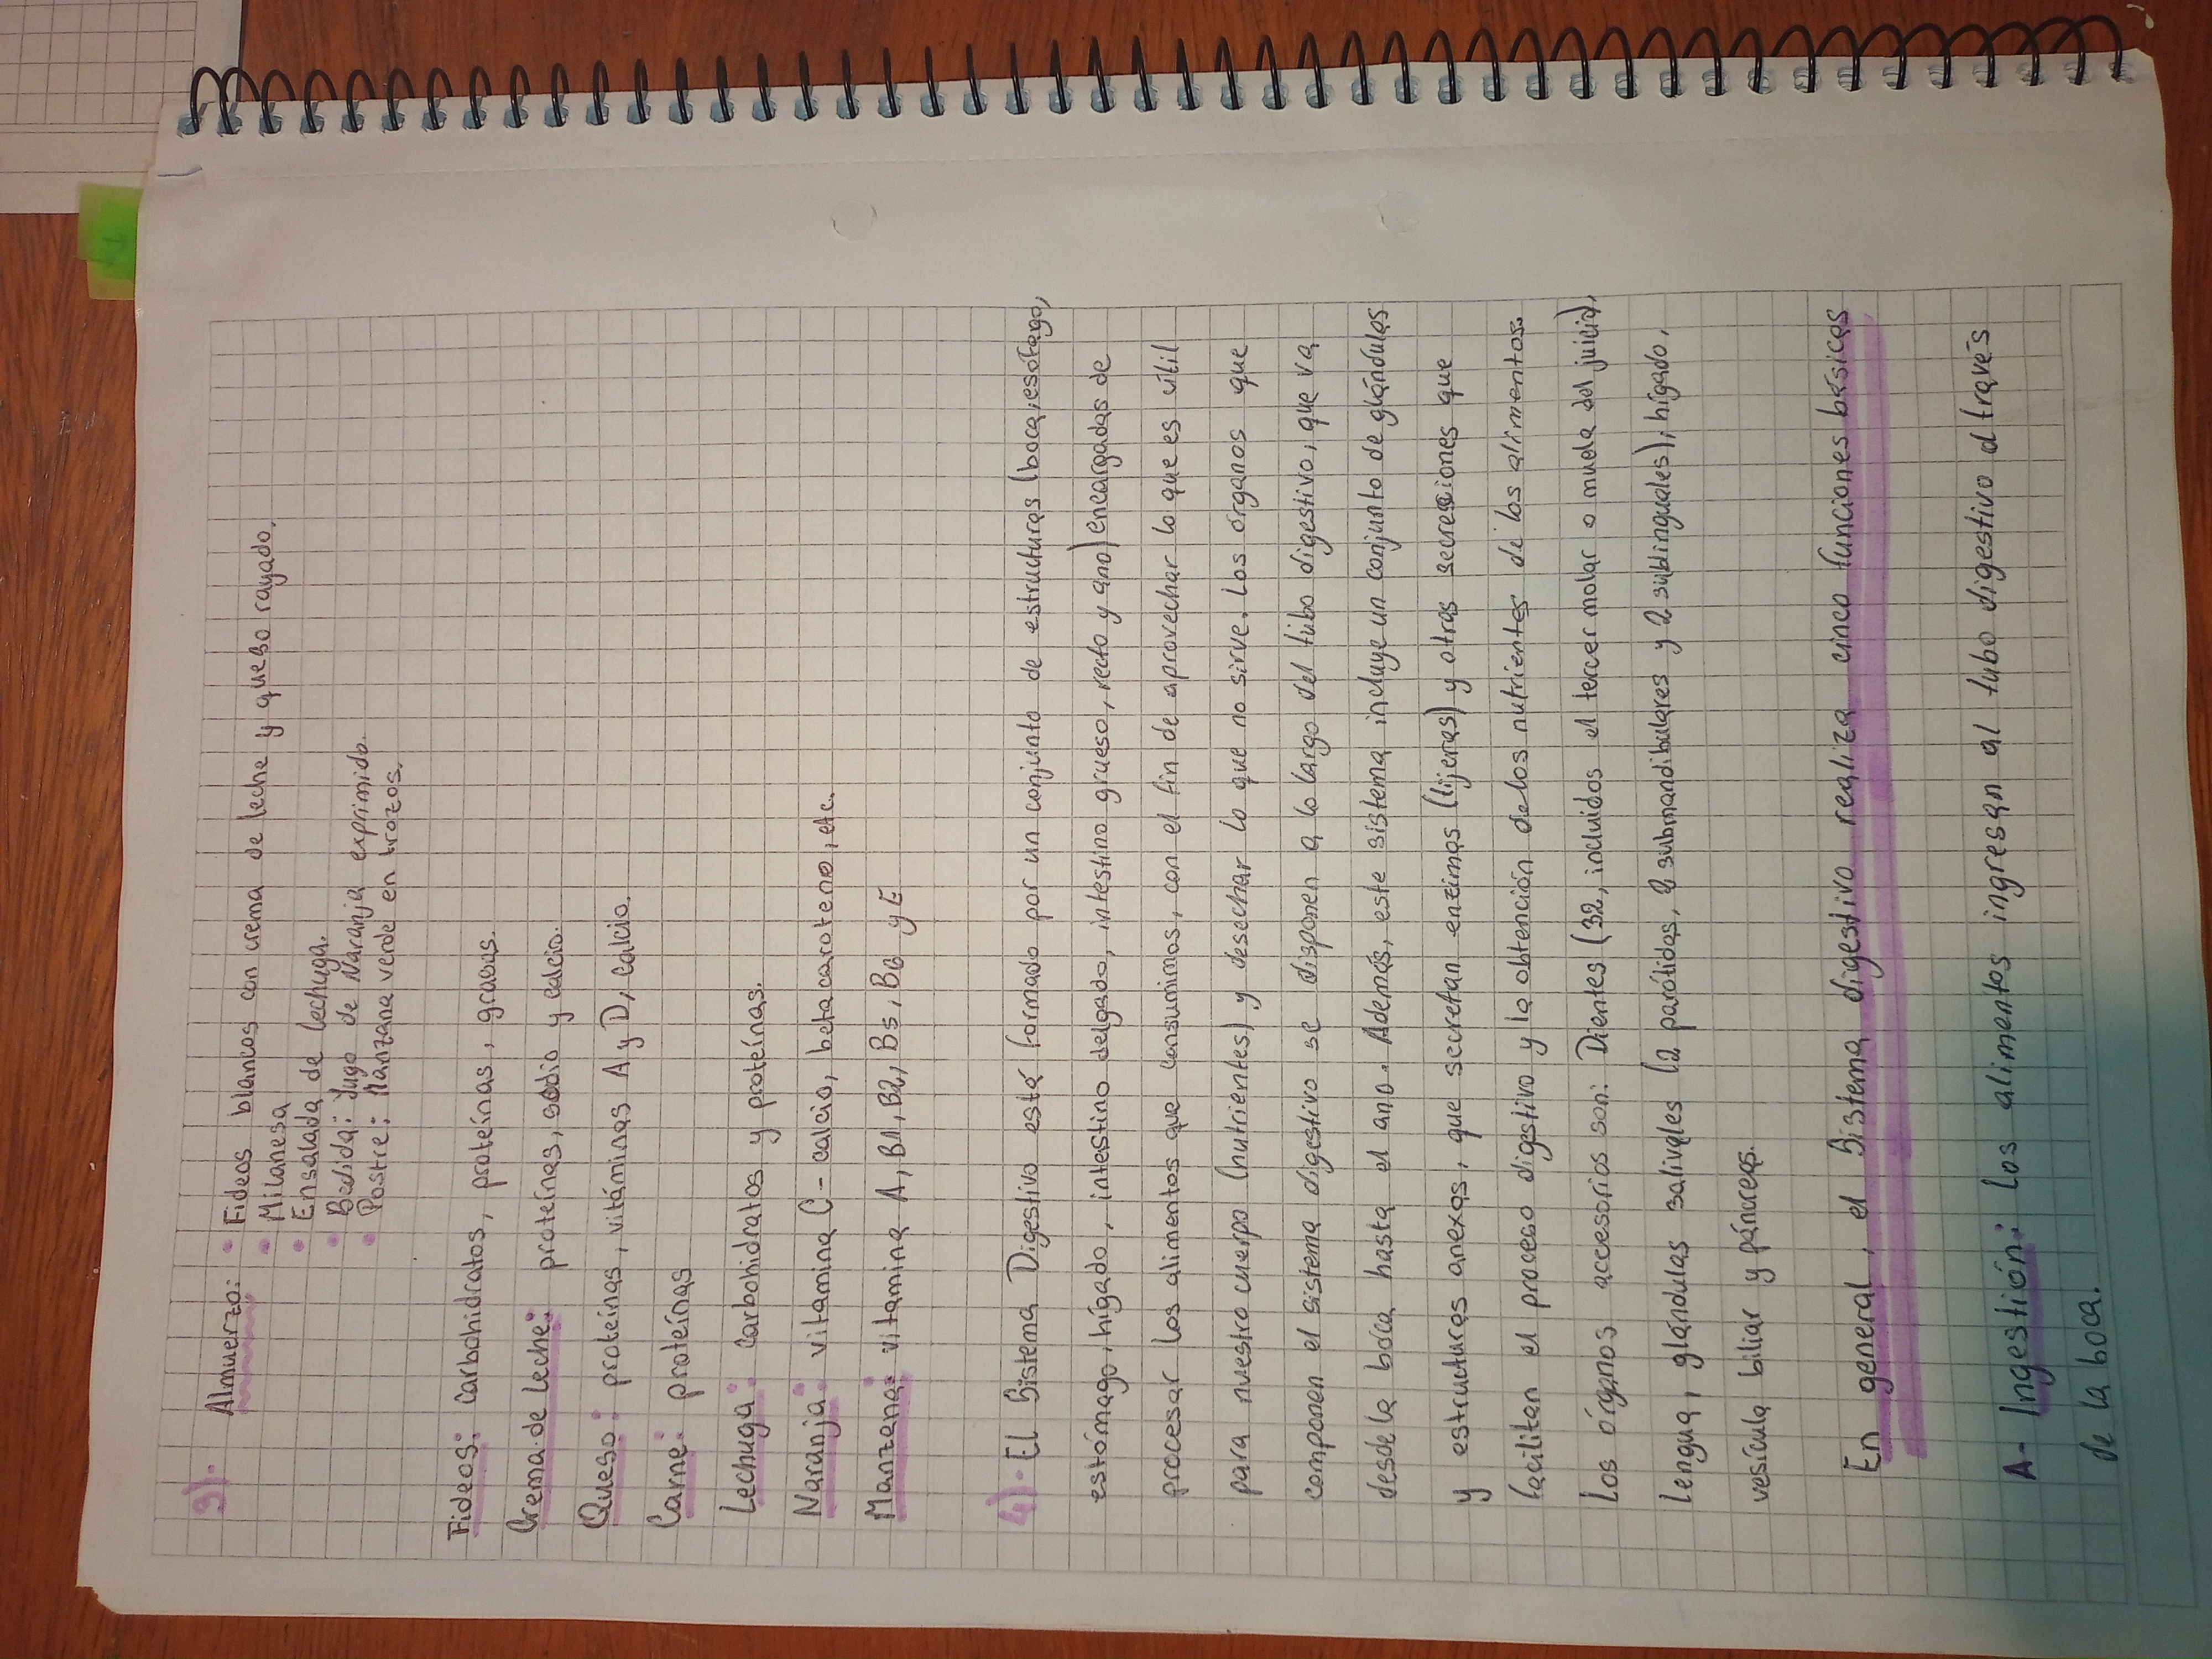 3)· Almuerzo: • Fideos blancos con crema de leche y queso rayado.
• Milanesa
• Ensalada de lechuga.
• Bedida: Jugo de Naranja exprimido.
• Postre: Manzana verde en trozos.
Fideos: carbohidratos, proteínas, grasas.
Crema de leche: proteínas, sodio y calcio.
Queso: proteínas, vitáminas A y D, calcio.
Carne: proteínas
Lechuga: carbohidratos y proteínas.
Naranja: vitamina C - calcio, beta caroteno, etc.
Manzana: vitamina A, B1, B2, B5, B6 y E
4)· El Sistema Digestivo está formado por un conjunto de estructuras (boca, esófago,
estómago, hígado, intestino delgado, intestino grueso, recto y ano) encargadas de
procesar los alimentos que consumimos, con el fin de aprovechar lo que es útil
para nuestro cuerpo (nutrientes) y desechar lo que no sirve. Los órganos que
componen el sistema digestivo se disponen a lo largo del tubo digestivo, que va
desde la boca hasta el ano. Además, este sistema incluye un conjunto de glándulas
y estructuras anexas, que secretan enzimas (tijeras) y otras secreciones que
facilitan el proceso digestivo y la obtención de los nutrientes de los alimentos.
Los órganos accesorios son: Dientes (32, incluidos el tercer molar o muela del juicio),
lengua, glándulas salivales (2 parótidas, 2 submandibulares y 2 sublinguales), hígado,
vesícula biliar y páncreas.
En general, el Sistema digestivo realiza cinco funciones básicas
A- Ingestión: Los alimentos ingresan al tubo digestivo a través
de la boca.